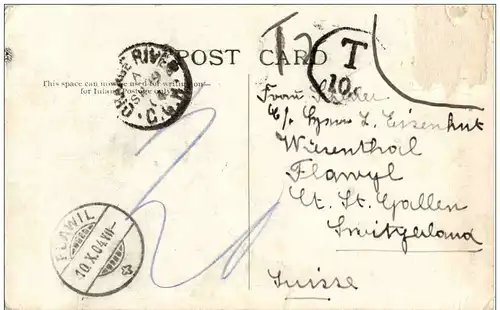 POST CARD
This space can now be used for writing on
for Inland Postage only
ORANGE RIVER
C.G.H.
T
10c
Frau
c/o Herrn L. Eisenhut
Wiesenthal
Flawyl
Ct. St. Gallen
Switzerland
Suisse
FLAWIL
10.X.04.VII-